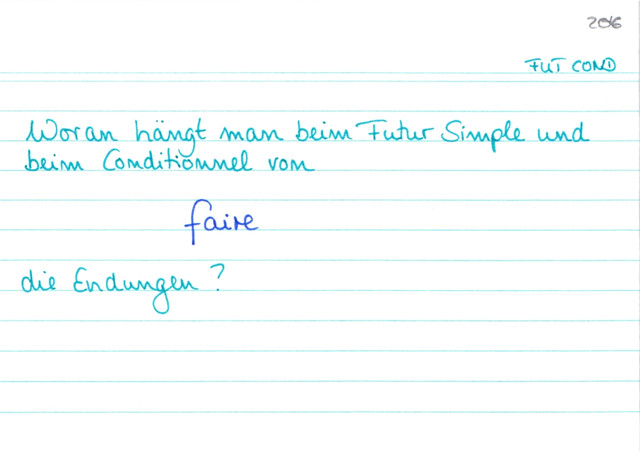 206
FUT COND
Woran hängt man beim Futur Simple und
beim Conditionnel von
faire
die Endungen?